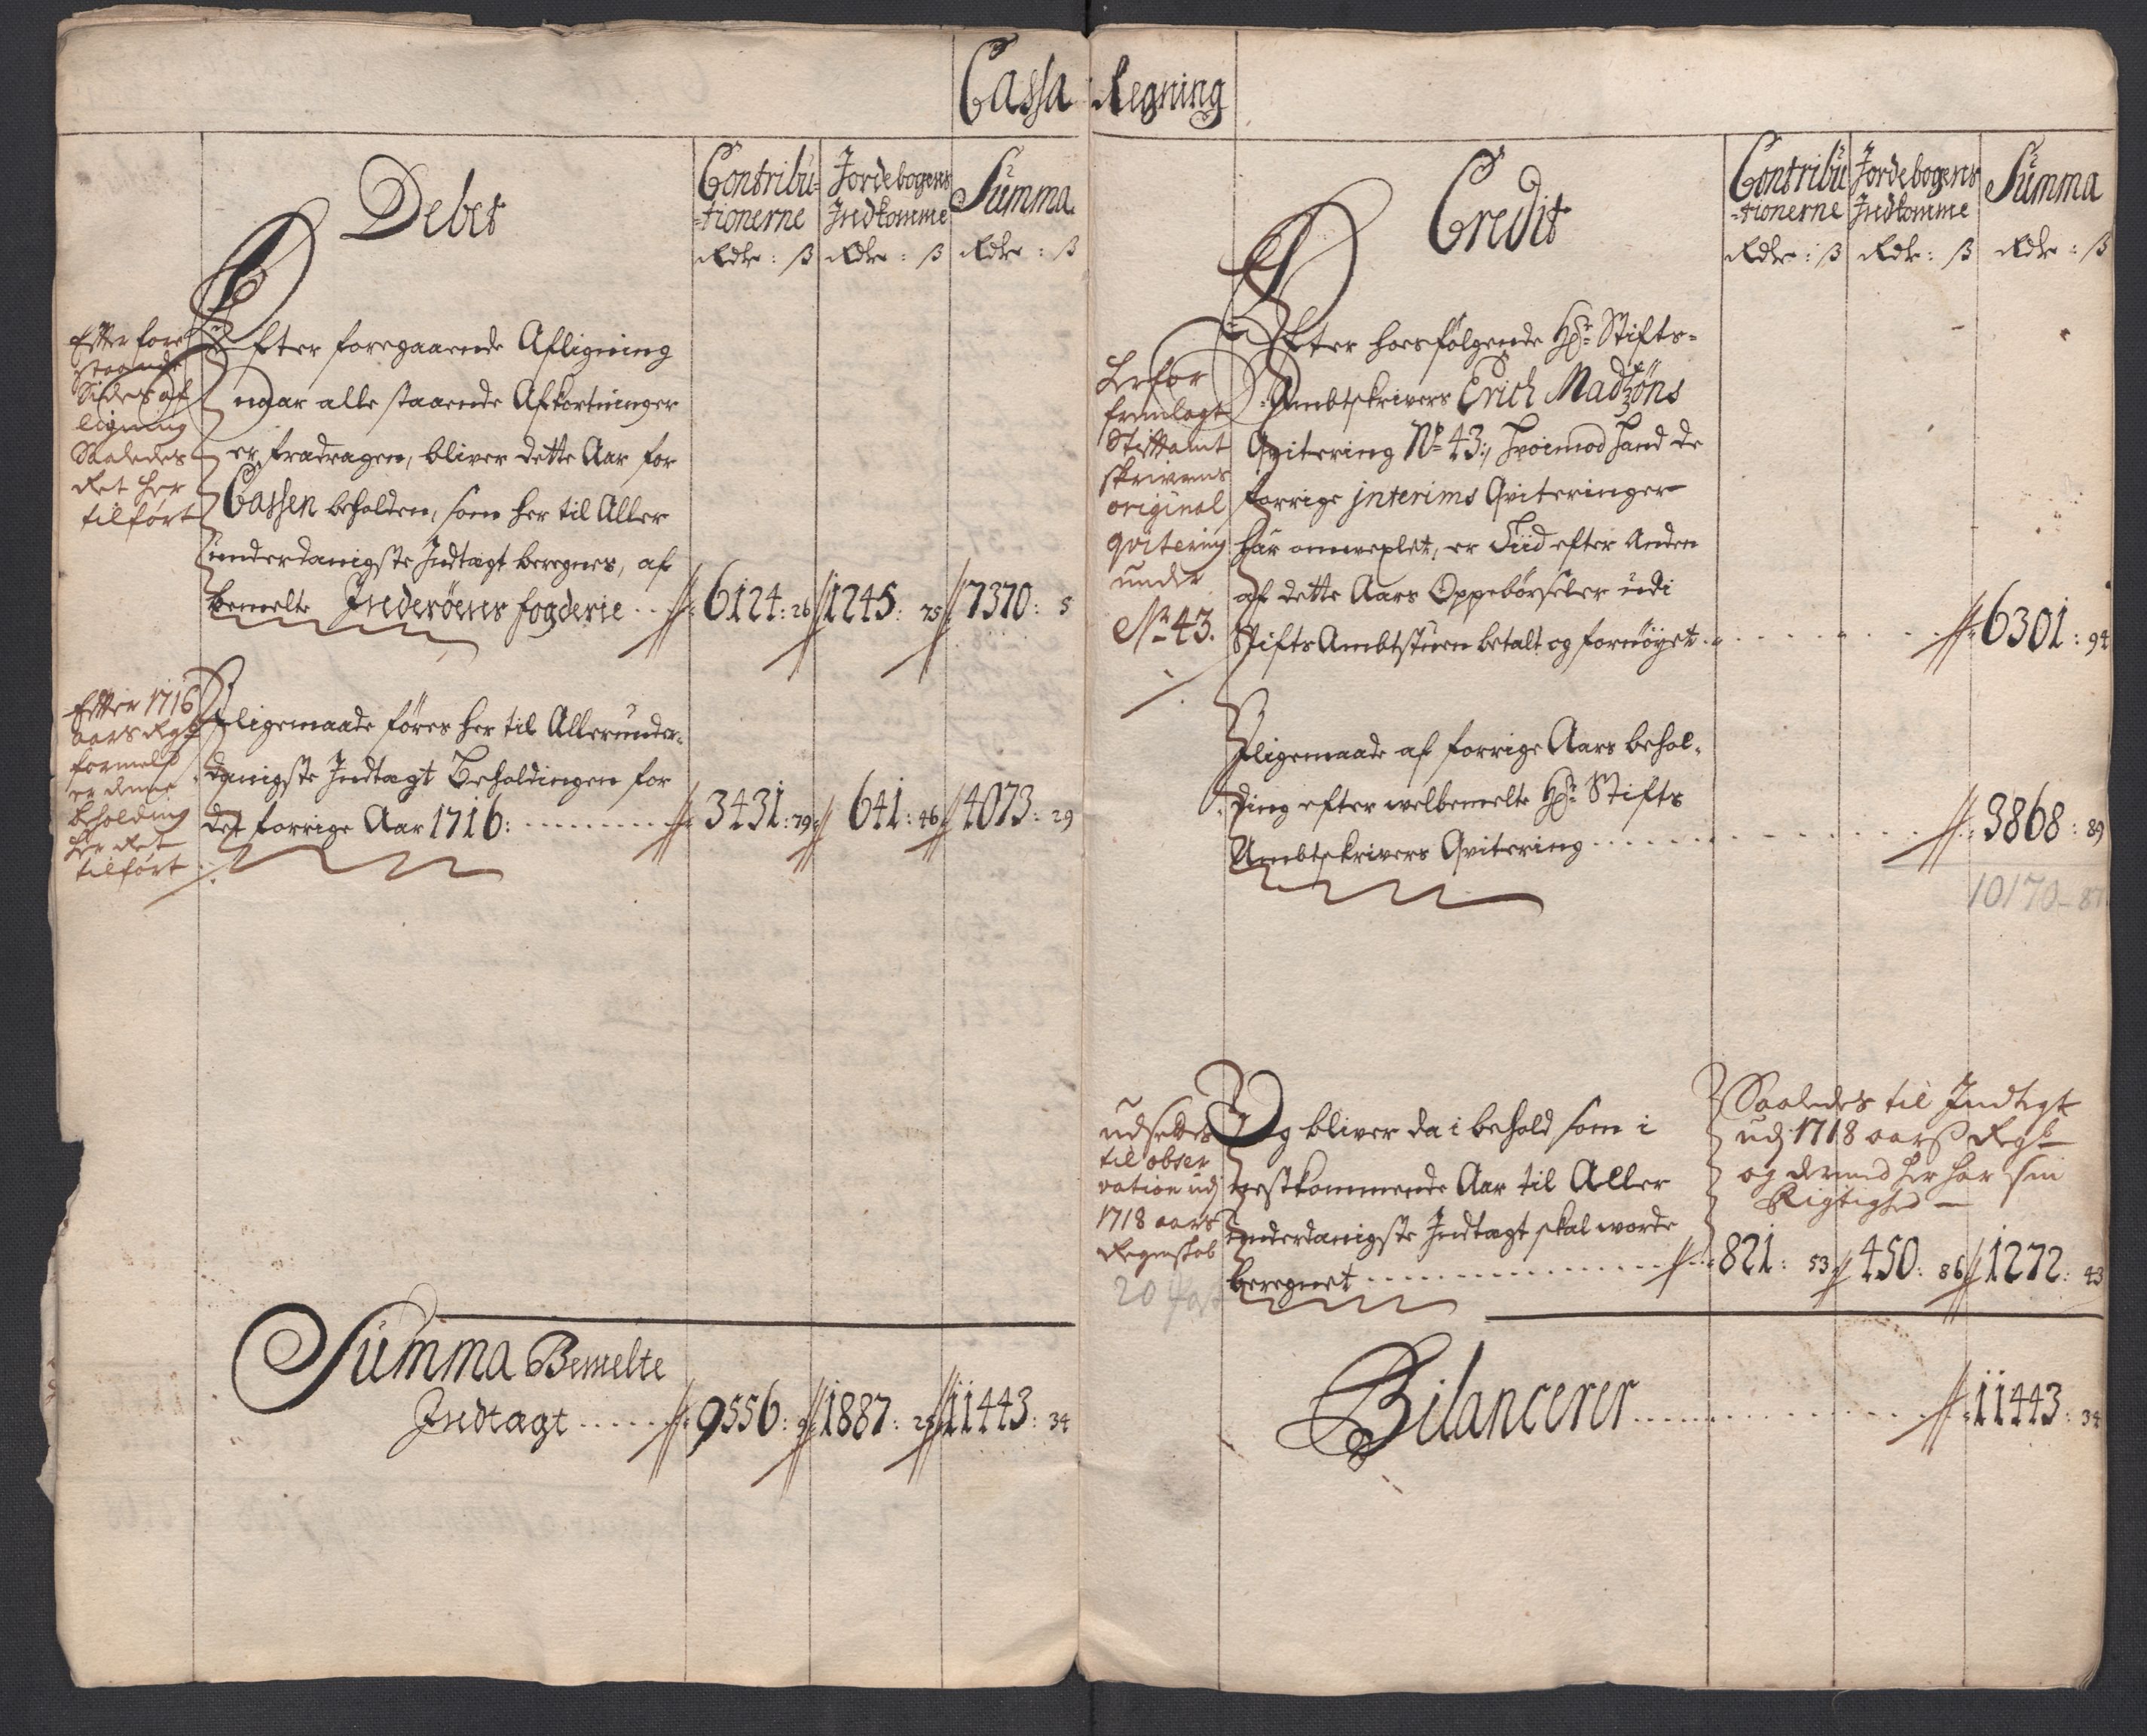 Cassa Regning
Debet
Contribu-
-tionerne
Rdr : ß
Jordebogens
Indkomme
Rdr : ß
Summa
Rdr : ß
Efter fore
staaende
Sides af
ligning
Saaledes
Ret her
tilført
Efter foregaaende Afligning
naar alle staaende Afkortninger
er fradragen, bliver dette Aar for
Cassen beholden, som her til Aller
underdanigste Indtægt beregnes, af
bemelte Inderöens fogderie .. 6124: 26 1245: 75 7370: 5
Efter 1716
aars Regs
formeld
er denne
beholding
her Ret
tilført
Iligemaade föres her til Allerunder-
danigste Indtægt Beholdingen for
det forrige Aar 1716: .......... 3431: 79 641: 46 4073: 29
Summa Bemelte
Indtægt ...... 9556: 9 1887: 25 11443: 34
Credit
Contribu
-tionerne
Rdr : ß
Jordebogens
Indkomme
Rdr : ß
Summa
Rdr : ß
Herfor
fremlagt
Stiftamt
skrivens
original
qvitering
under
No 43.
Efter hoesfølgende Hr: Stifts-
Ambtskrivers Erich Madzöns
Qvitering No 43:, hvoimod hand de
forrige interims Qviteringer
har omvexlet, er Tiid efter Anden
af dette Aars Oppebørseler udi
Stifts Ambtstuen betalt og fornöyet .. 6301: 94
Iligemaade af forrige Aars behol-
ding efter welbemelte Hr: Stifts
Ambtskrivers Qvitering ...... 3868: 89
10170 - 87
udsettes
til obser
vation udj
1718 aars
Regenskab
20
Og bliver da i behold som i
nestkommende Aar til Aller
underdanigste Indtægt skal worde
beregnet ........ 821: 53 450: 86 1272: 43
Saaledes til Indtegt
udj 1718 aarß Regs
og dermed her har sin
Rigtighed
Bilancerer ........ 11443: 34